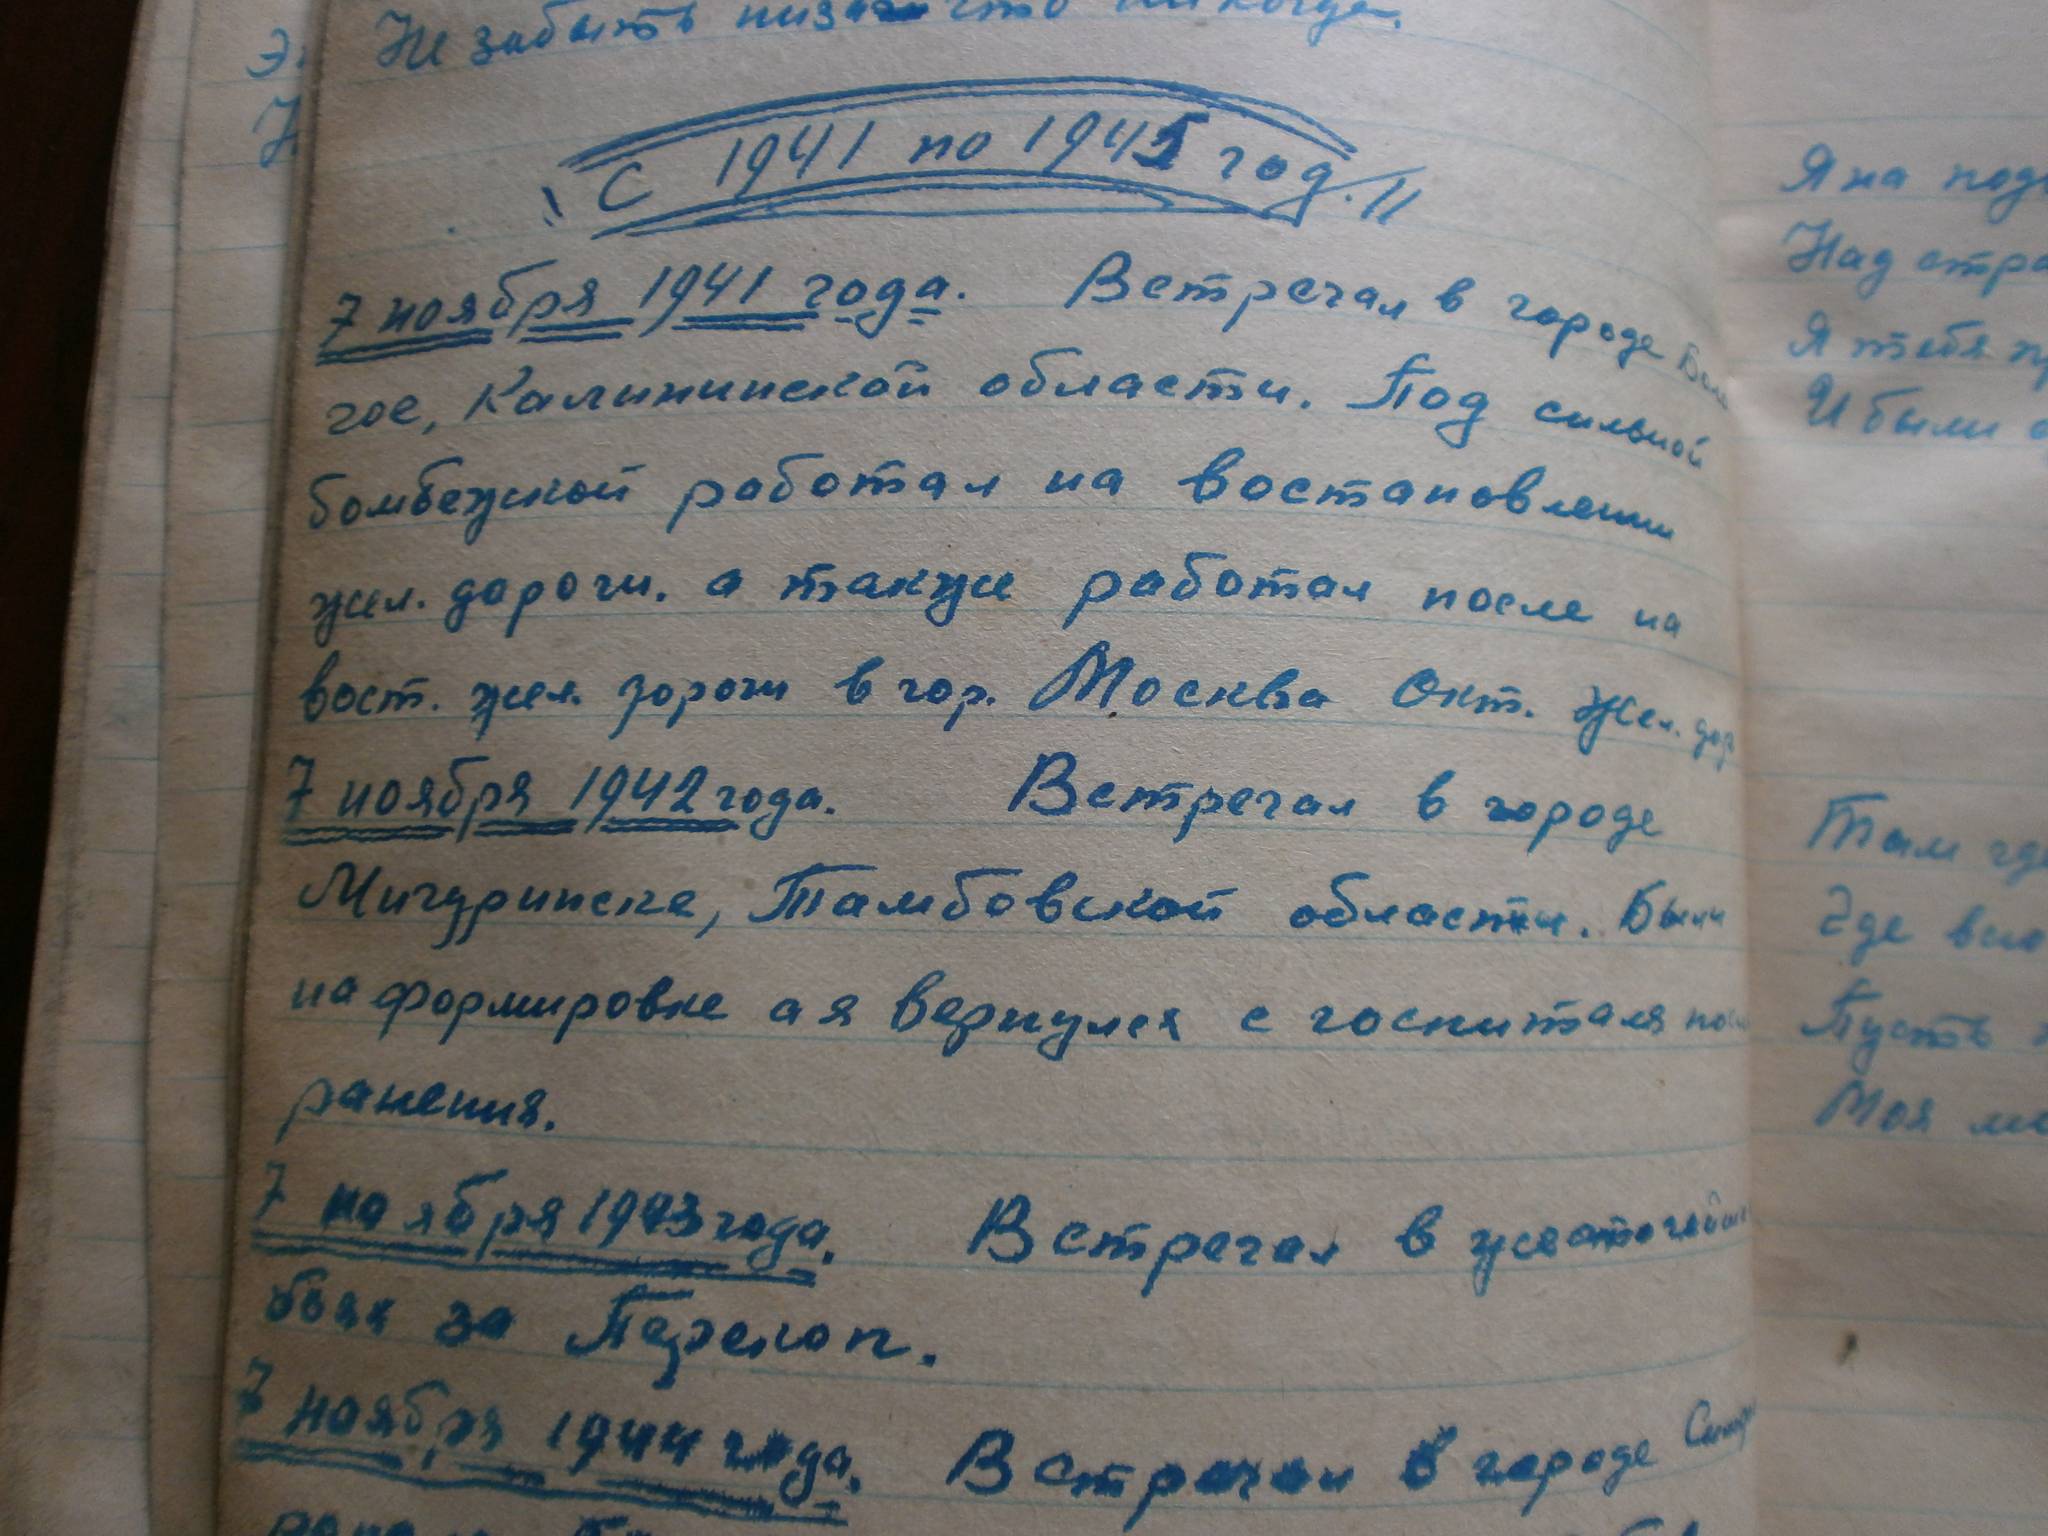 Не забыть низашто никогда.
С 1941 по 1945 год.
7 ноября 1941 года. Встречал в городе Боло
гое, Калининской области. Под сильной
бомбежкой работал на востановлении
жел. дороги. а также работал после на
вост. жел. дороги в гор. Москва Окт. Жел. дор
7 ноября 1942 года. Встречал в городе
Мичуринске, Тамбовской области. Были
на формировке а я вернулся с госпиталя после
ранения.
7 ноября 1943 года. Встречал в жесточайших
боях за Перекоп.
7 ноября 1944 года. Встречал в городе
Я на
Над
Я тебя
И были
Там где
Где
Пусть
Моя